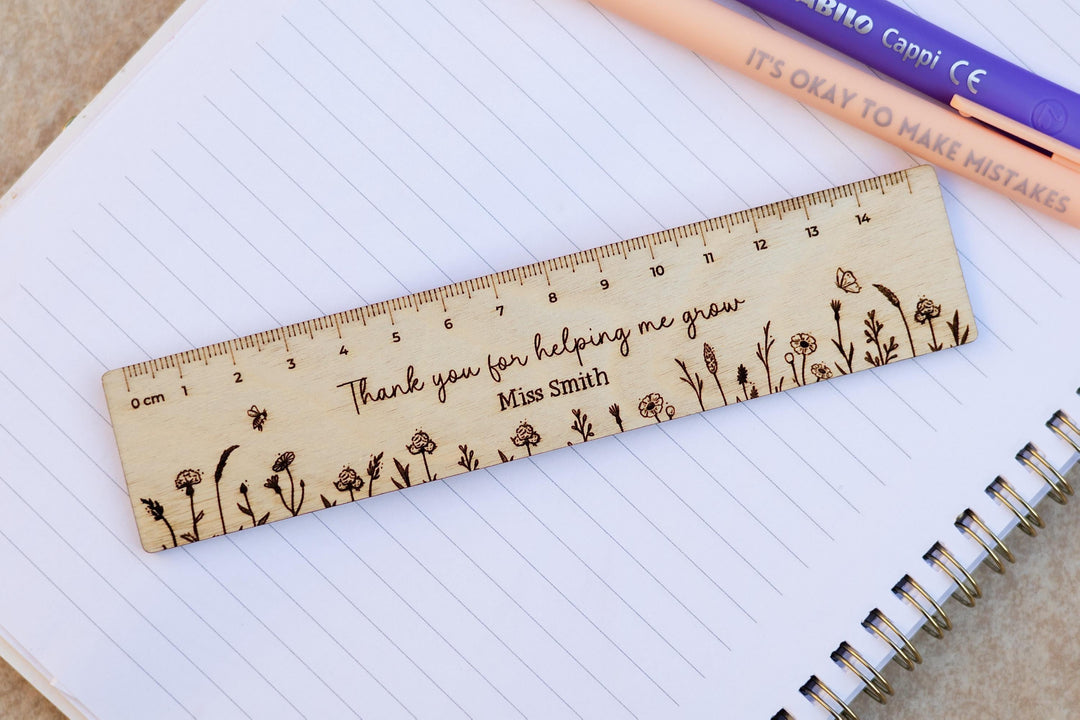 ABILO Cappi CE
IT'S OKAY TO MAKE MISTAKES
0 cm 1 2 3 4 5 6 7 8 9 10 11 12 13 14
Thank you for helping me grow
Miss Smith